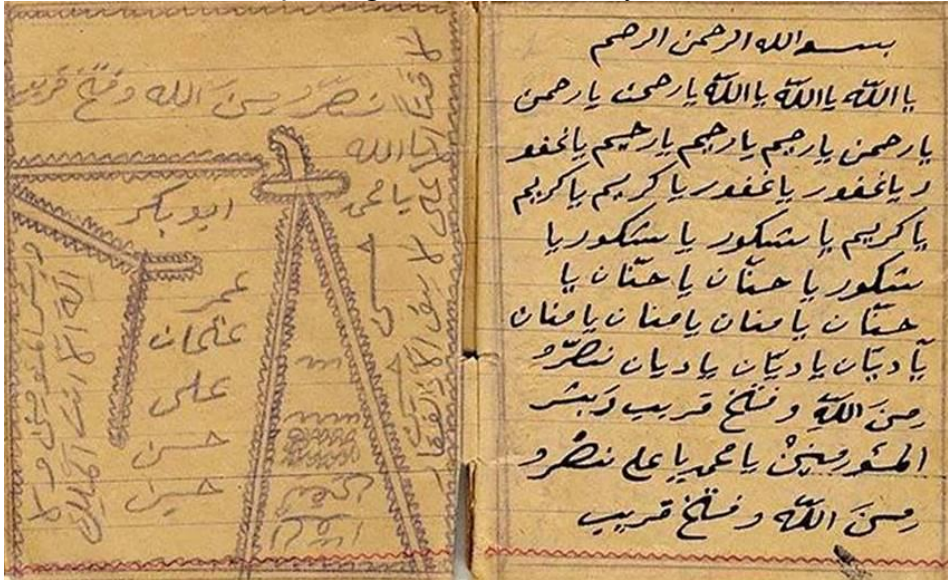 بسم الله الرحمن الرحيم
يا اللّٰه يا اللّٰه يا اللّٰه يا رحمن يا رحمن
يا رحمن يا رحيم يا رحيم يا رحيم يا غفو
ر يا غفور يا غفور يا كريم يا كريم
يا كريم يا شكور يا شكور يا
شكور يا حنّان يا حنّان يا
حنّان يا منان يا منان يا منان
يا ديّان يا ديّان يا ديان نصرٌ و
مِنَ اللّٰهِ و فتحٌ قريب وَبشر
المئومنينْ يا محمد يا على نصرٌ و
مِنَ اللّٰه و فتحٌ قريب
نصرٌ مِنَ الله و فتحٌ قريب
لا فتا الا على
لا سيف الا ذوالفقار
يا الله
يا محمد
ابوبكر
عمر
عثمان
على
حسن
حسين